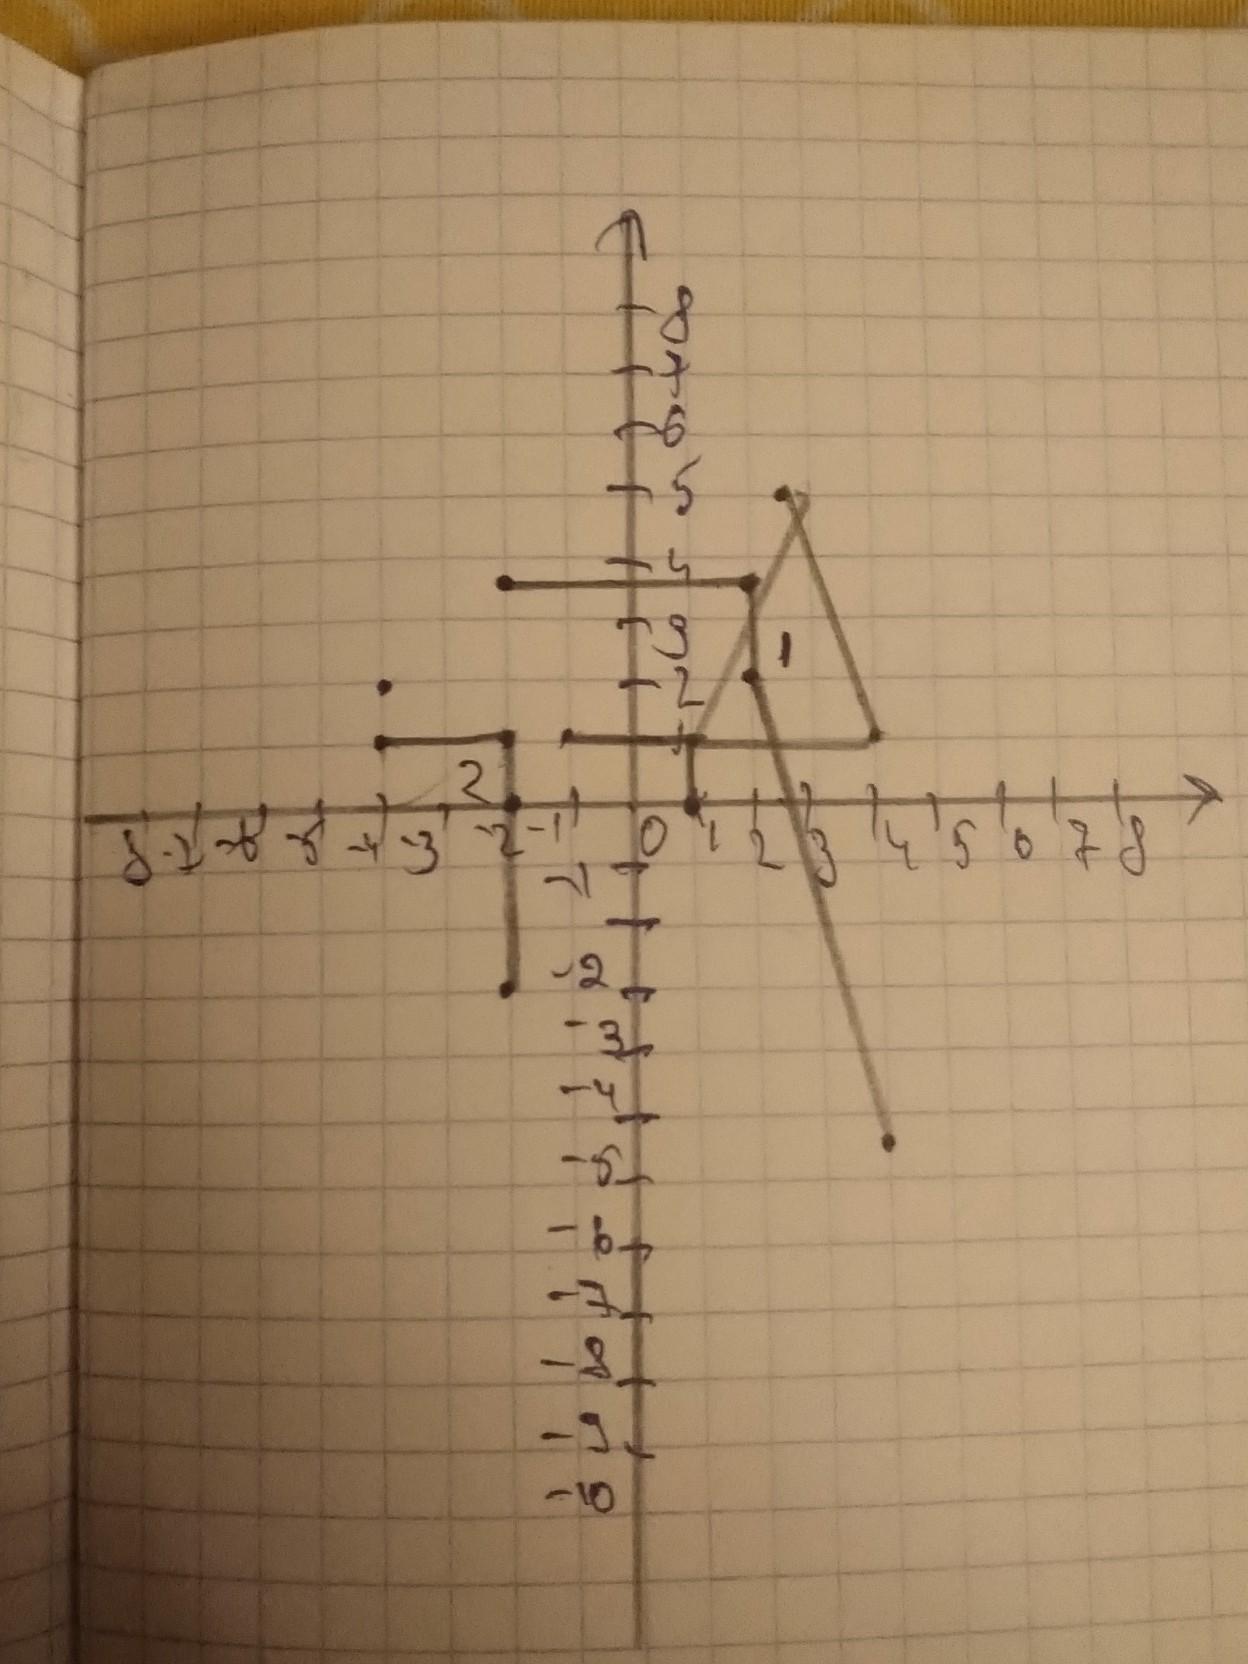 8
7
6
5
4
3
1
2
1
2
-7 -6 -5 -4 -3 -2 -1 0 1 2 3 4 5 6 7 8
-1
-2
-3
-4
-5
-6
-7
-8
-9